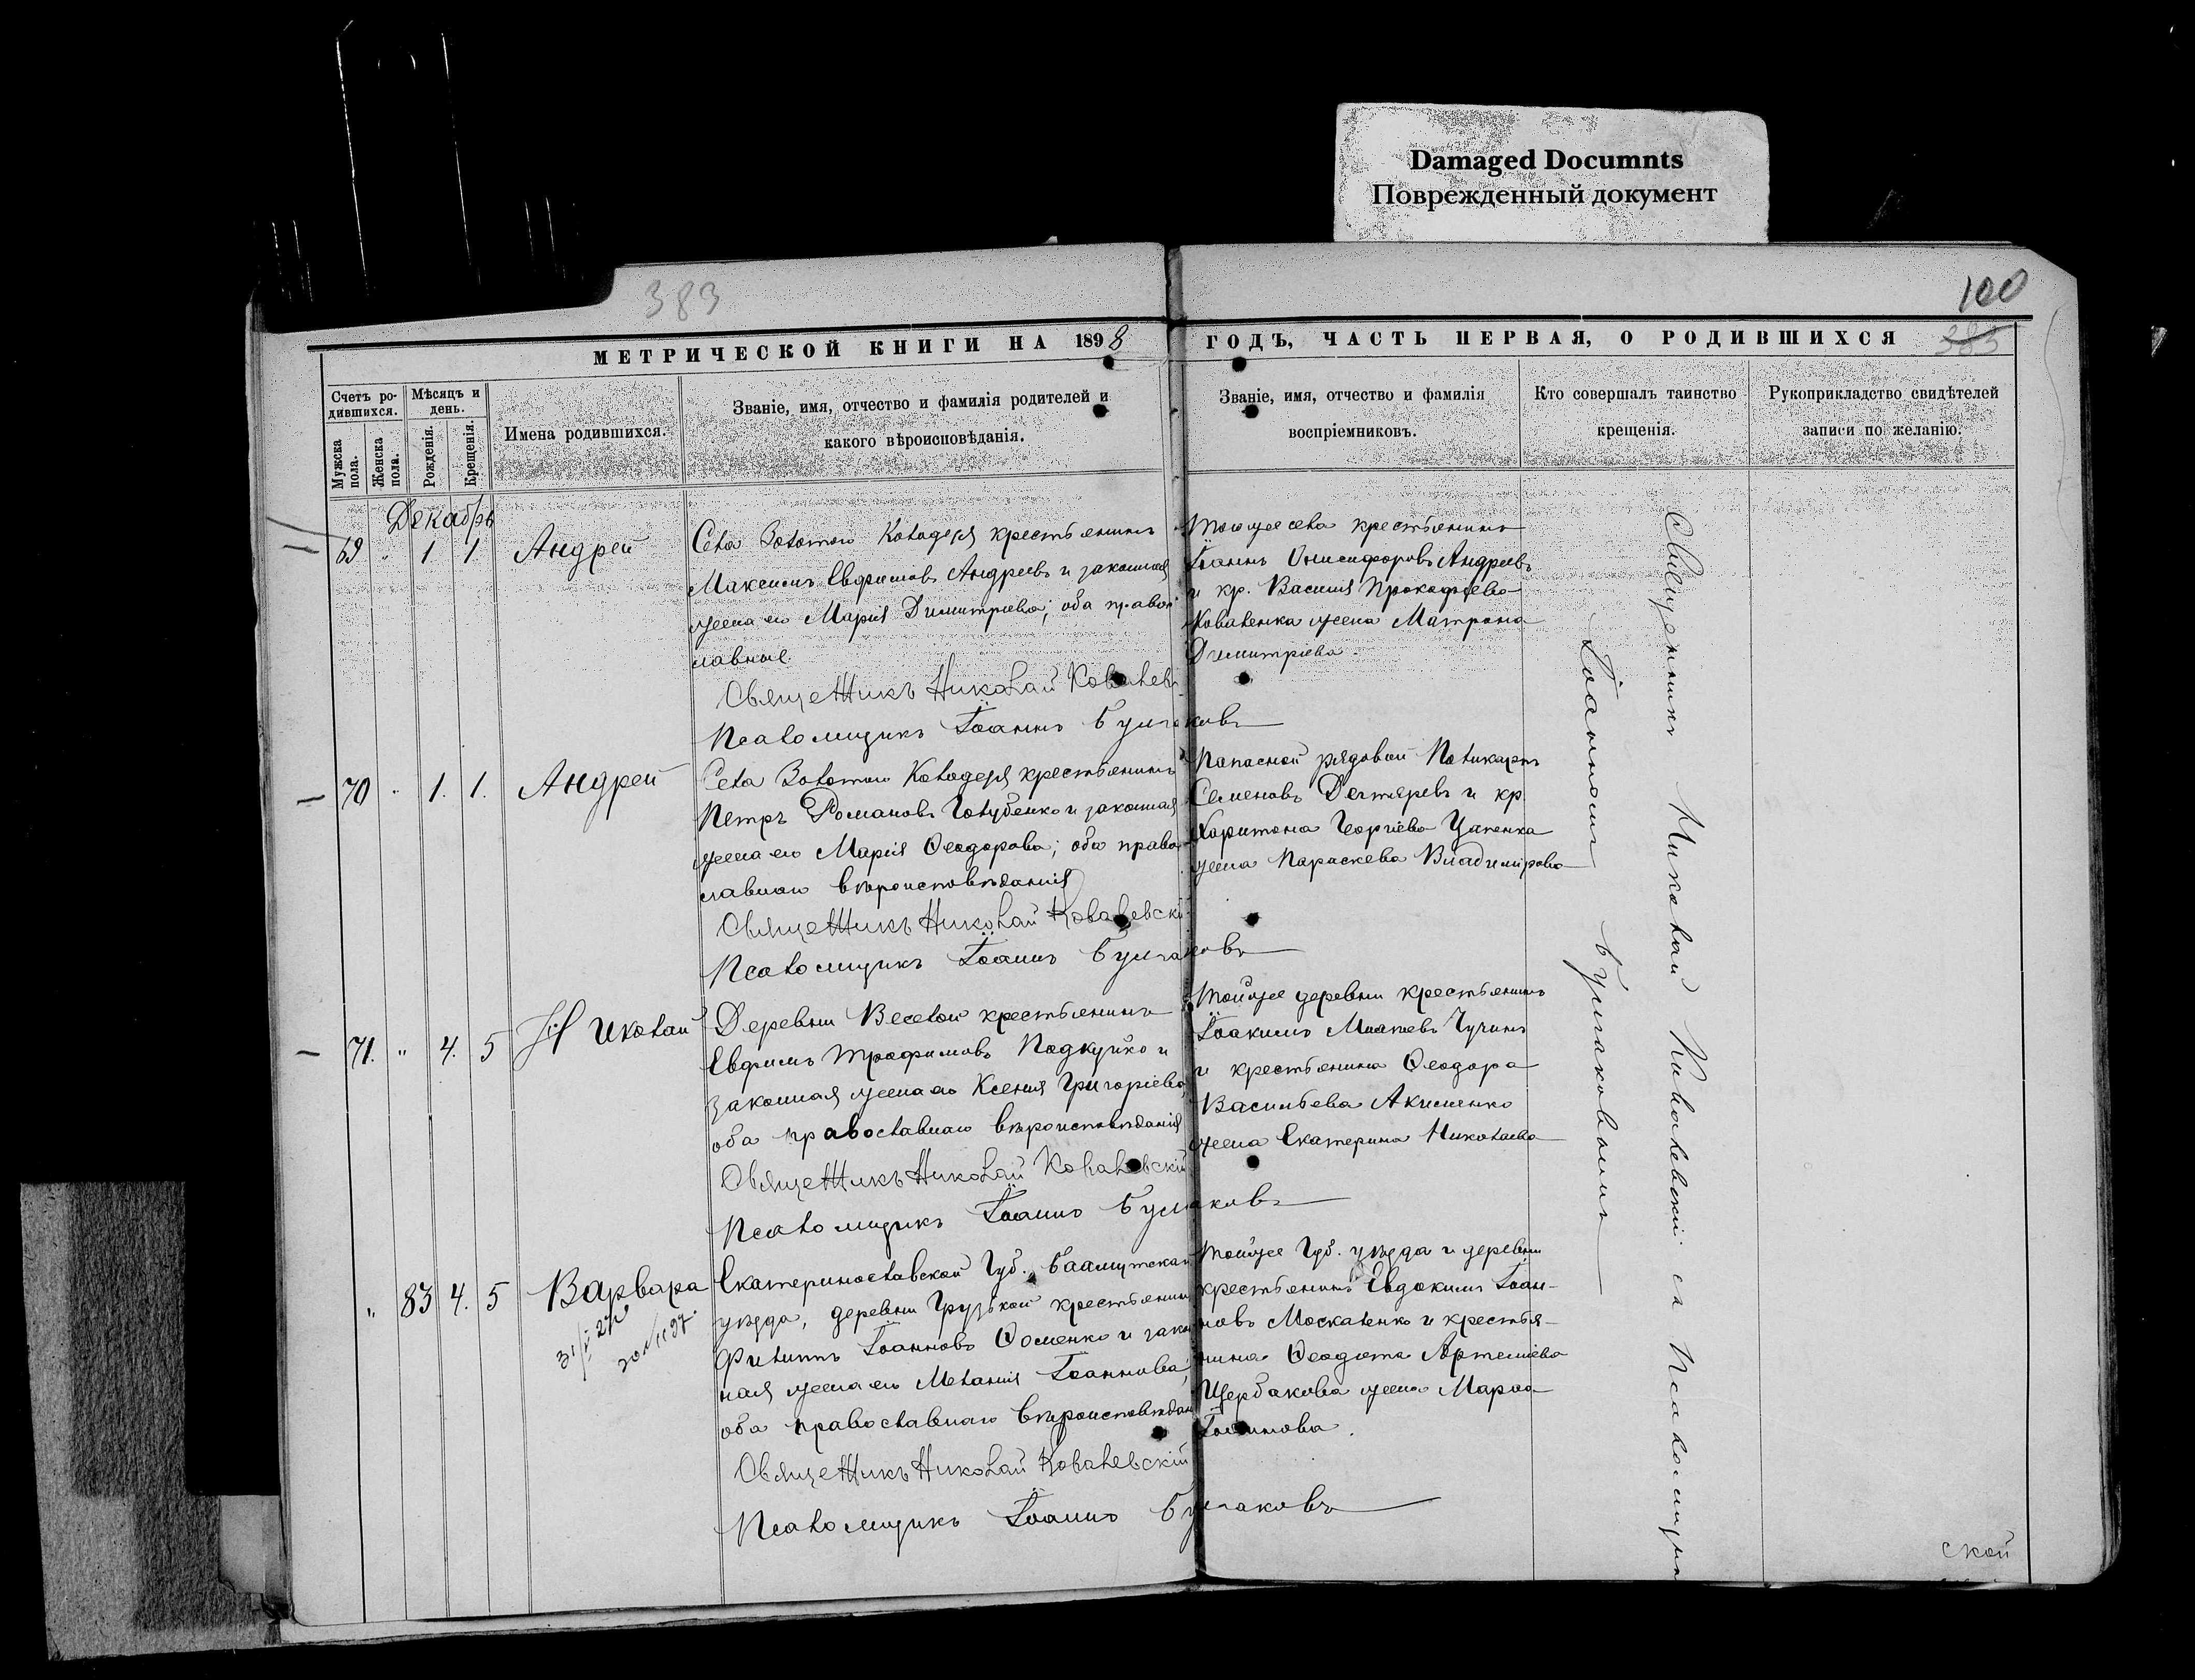 Damaged Documnts
Поврежденный документ
383
100
МЕТРИЧЕСКОЙ КНИГИ НА 1898 ГОДЪ, ЧАСТЬ ПЕРВАЯ, О РОДИВШИХСЯ
385
Счетъ ро-
дившихся.
Мѣсяцъ и
день.
Мужска
пола.
Женска
пола.
Рожденія.
Крещенія.
Имена родившихся.
Званіе, имя, отчество и фамилія родителей и
какого вѣроисповѣданія.
Званіе, имя, отчество и фамилія
воспріемниковъ.
Кто совершалъ таинство
крещенія.
Рукоприкладство свидѣтелей
записи по желанію.
Декабрь
69 " 1 1 Андрей
Села Золотаго Колодезя крестьянинъ
Максимъ Евфимовъ Андреевъ и законная
жена его Марія Димитріева; оба правос
лавные.
Тогоже села крестьянинъ
Іоаннъ Онисифоровъ Андреевъ
и кр. Василія Прокофіева
Коваленка жена Матрона
Димитріева.
Священникъ Николай Ковалевс
Псаломщикъ Іоаннъ Булгаковъ
70 " 1. 1. Андрей
Села Золотаго Колодезя крестьянинъ
Петръ Романовъ Голубенко и законная
жена его Марія Ѳеодорова; оба право
славнаго вѣроисповѣданія
Запасной рядовой Поликарпъ
Семеновъ Дегтяревъ и кр.
Харитона Георгіева Цапенка
жена Параскева Владимірова
Священникъ Николай Ковалевскі
Псаломщикъ Іоаннъ Булгаковъ
71. " 4. 5 Николай
Деревни Веселой крестьянинъ
Евфимъ Трофимовъ Подкуйко и
законная жена его Ксенія Григоріева,
оба православнаго вѣроисповѣданія
Тойже деревни крестьянинъ
Іоакимъ
и крестьянина Ѳеодора
Васильева Акименко
жена Екатерина Николаева
Священникъ Николай Ковалевскій
Псаломщикъ Іоаннъ Булгаковъ
" 83 4. 5 Варвара
Екатеринославской Губ. Бахмутскаго
уѣзда, деревни Грузской крестьянинъ
Филиппъ Іоанновъ Ѳоменко и закон
ная жена его Меланія Іоаннова;
оба православнаго вѣроисповѣдан
Тойже Губ. уѣзда и деревни
крестьянинъ Евдокимъ Іоан-
новъ Москаленко и крестья-
нина Ѳеодота Артеміева
Щербакова жена Марѳа
Іоаннова.
Священникъ Николай Ковалевскій
Псаломщикъ Іоаннъ Булгаковъ
Священникъ Николай Ковалевскій съ Псаломщик
Іоанномъ Булгаковымъ
ской